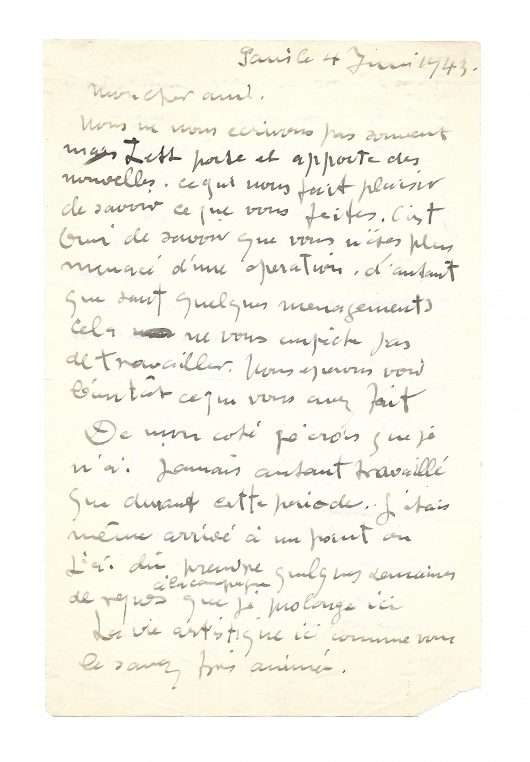 Paris le 4 Juin 1943.
Mon cher ami.
Nous ne nous ecrivons pas souvent
mais porte et apporte des
nouvelles. ce qui nous fait plaisir
de savoir ce que vous faites. C'est
de savoir que vous n'êtes plus
menacé d'une operation. d'autant
que sauf quelques menagements
cela ne vous empêche pas
de travailler. Nous esperons voir
bientôt ce que vous avez fait
De mon coté je crois que je
n'ai jamais autant travaillé
que durant cette periode. J'étais
même arrivé à un point ou
j'ai du prendre quelques semaines
à la campagne
de repos que je prolonge ici
La vie artistique ici comme vous
le savez très animée.